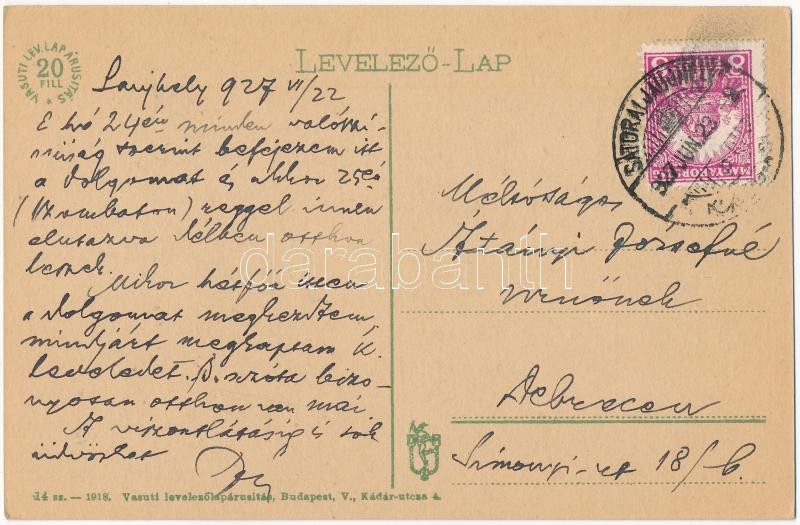 VASUTI LEV. LAP ÁRUSITÁS
20
FILL
LEVELEZŐ-LAP
8 8
MAGYARORSZ
927 JUN 22
927 VI/22
E hó 24én minden valószi-
nüség szerint befejezem itt
a dolgomat és akkor 25én
(Szombaton) reggel innen
elutazva délben otthon
leszek.
Mikor hétfőn itten
a dolgomat megkezdtem,
mindjárt megkaptam k.
leveledet. B. azóta bizo-
nyosan otthon van már
A viszontlátásig is sok
üdvözlet
Méltóságos
Józsefné
urnőnek
Debrecen
Simonyi-ut 18/b.
14 sz. — 1918. Vasuti levelezőlapárusitás, Budapest, V., Kádár-utcza 4.
darabanth